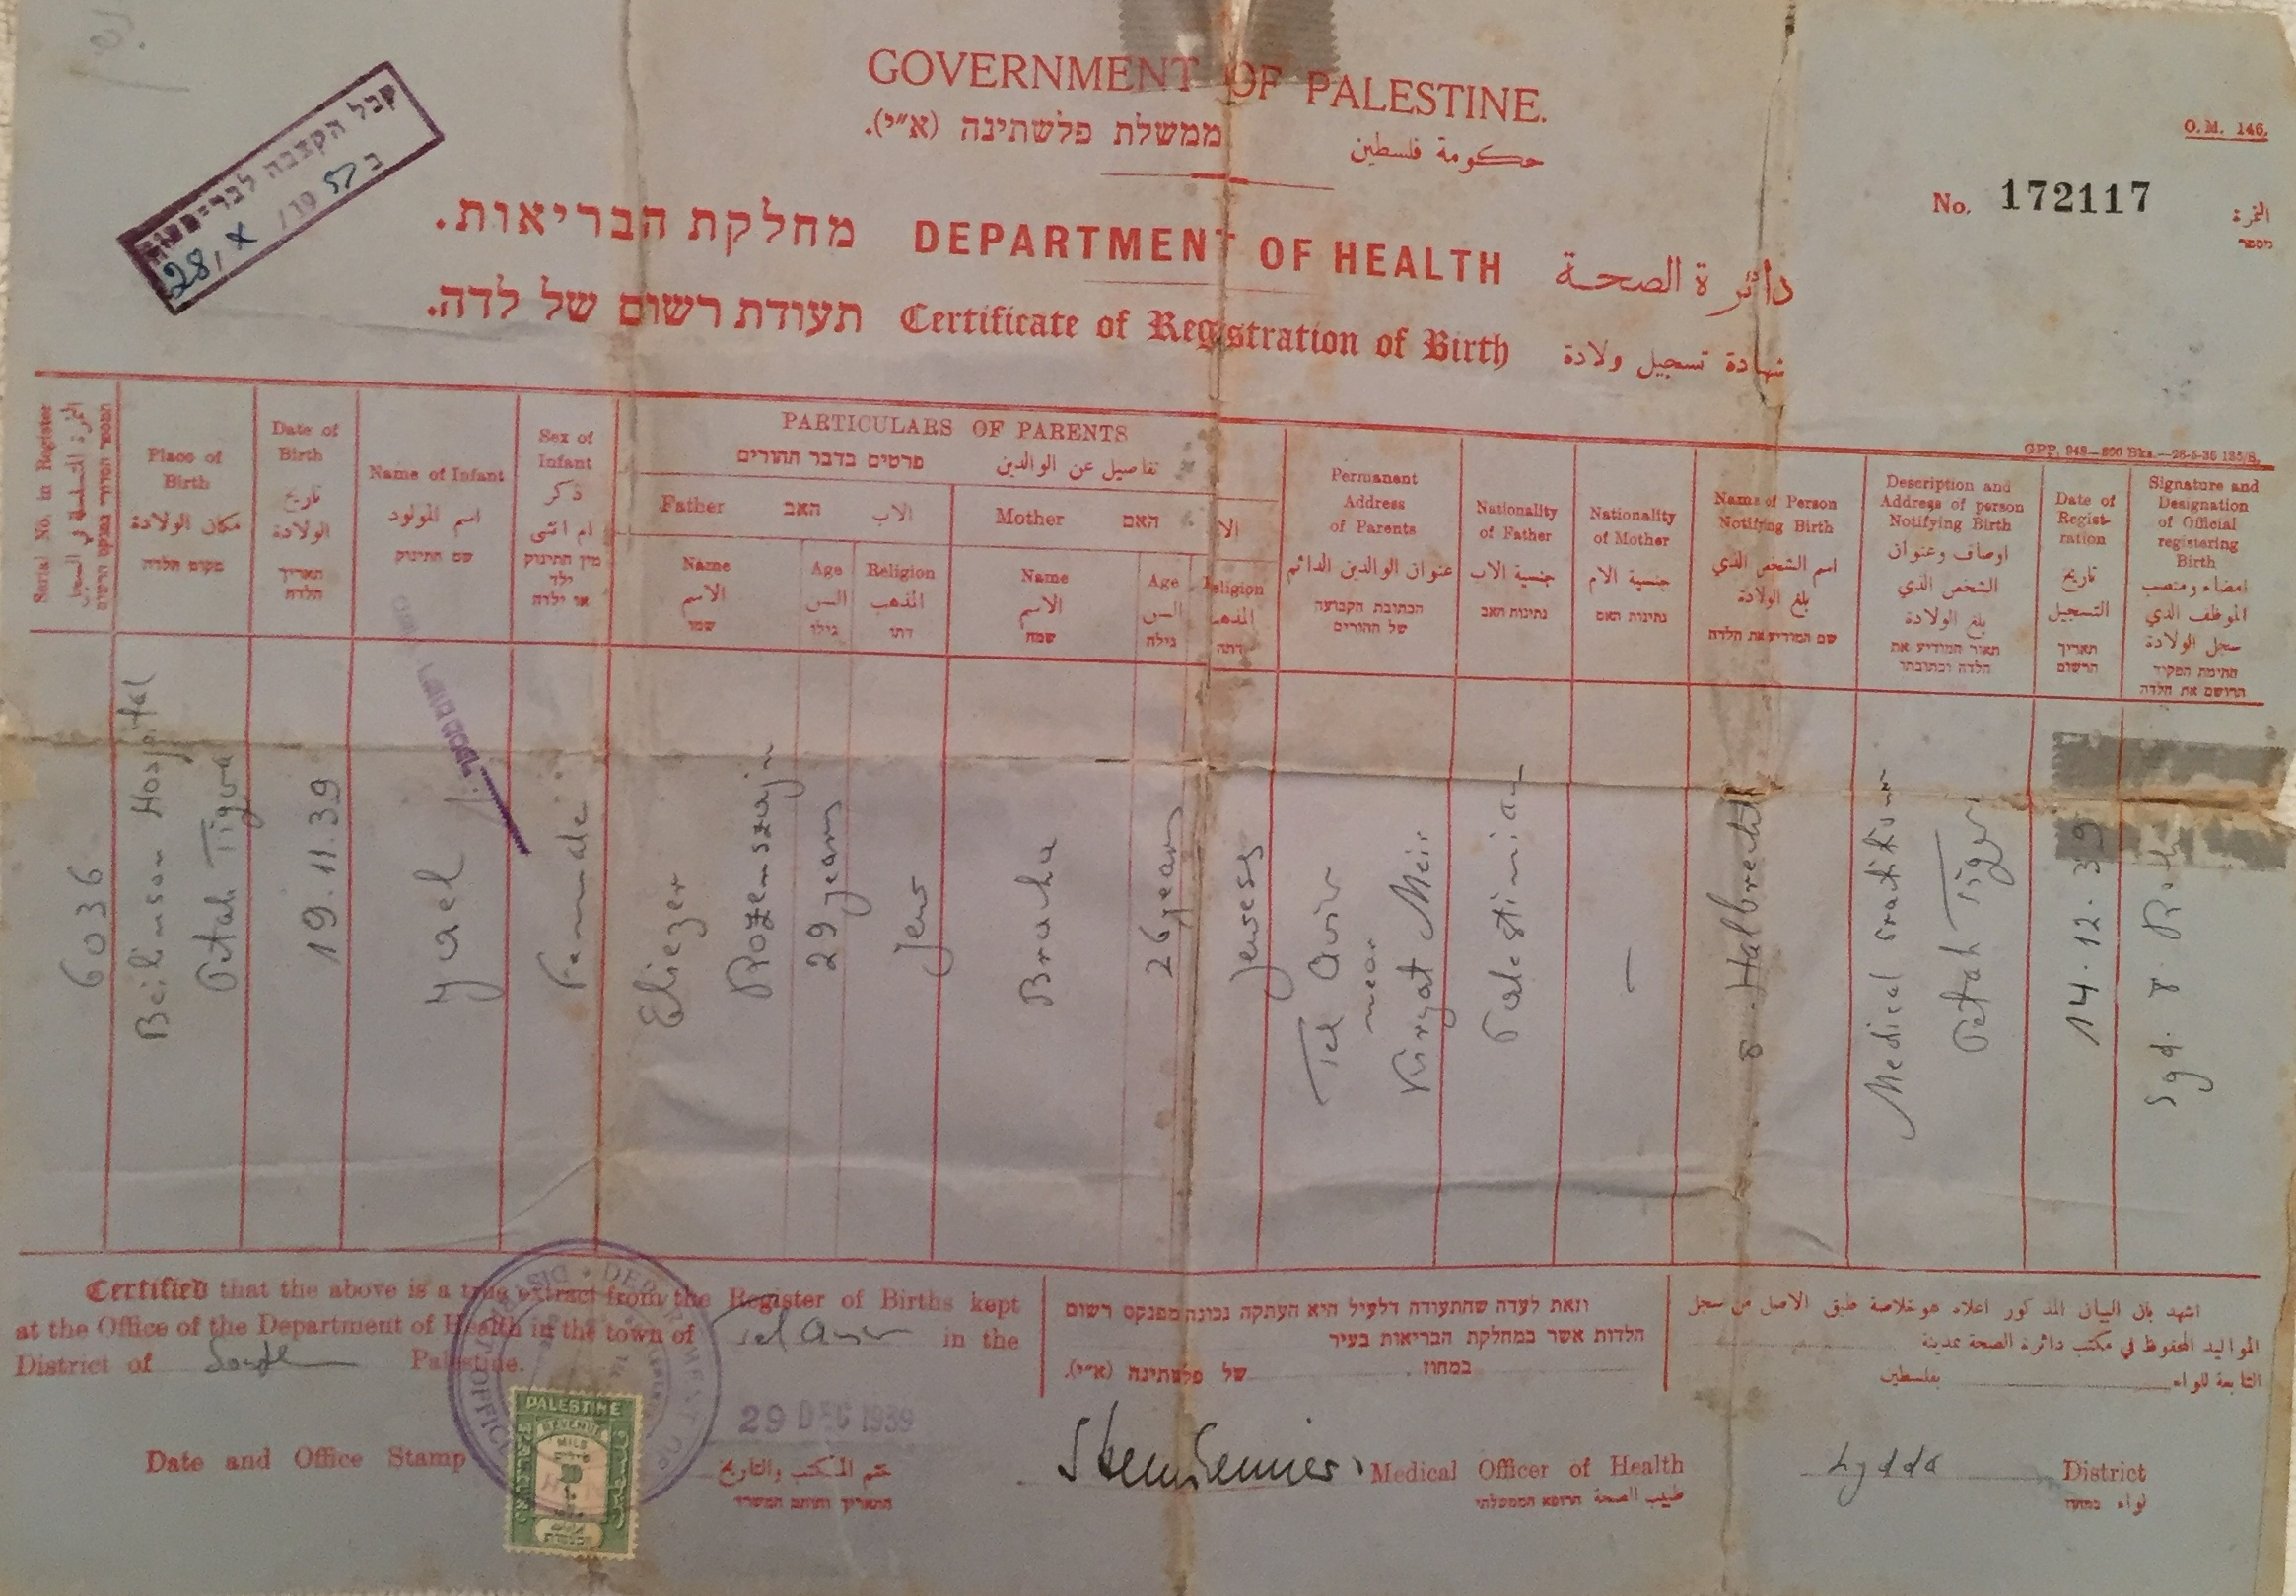 קבל הקצבה לבריסטות
28/X/1957 ב
GOVERNMENT OF PALESTINE.
ממשלת פלשתינה (א״י).
حكومة فلسطين
O.M. 146.
No. 172117
النمرة
מספר
מחלקת הבריאות. DEPARTMENT OF HEALTH دائرة الصحة
תעודת רשום של לדה. Certificate of Registration of Birth شهادة تسجيل ولادة
GPP. 949—800 Bks.—26-5-36 185/S.
Serial No. in Register
النمرة المتسلسلة في السجل
המספר הסדורי בפנקס הרשום
Place of
Birth
مكان الولادة
מקום הלדה
Date of
Birth
تاريخ
الولادة
תאריך
הלדה
Name of Infant
اسم المولود
שם התינוק
Sex of
Infant
ذكر
ام انثى
מין התינוק
ילד
או ילדה
PARTICULARS OF PARENTS
פרטים בדבר ההורים تفاصيل عن الوالدين
Father האב الاب
Mother האם الا
Name
الاسم
שמו
Age
السن
גילו
Religion
المذهب
דתו
Name
الاسم
שמה
Age
السن
גילה
Religion
المذهب
דתה
Permanent
Address
of Parents
عنوان الوالدين الدائم
הכתובת הקבועה
של ההורים
Nationality
of Father
جنسية الاب
נתינות האב
Nationality
of Mother
جنسية الام
נתינות האם
Name of Person
Notifying Birth
اسم الشخص الذي
بلغ الولادة
שם המודיע את הלדה
Description and
Address of person
Notifying Birth
اوصاف وعنوان
الشخص الذي
بلغ الولادة
תאור המודיע את
הלדה וכתובתו
Date of
Regist-
ration
تاريخ
التسجيل
תאריך
הרשום
Signature and
Designation
of Official
registering
Birth
امضاء ومنصب
الموظف الذي
سجل الولادة
חתימת הפקיד
הרושם את הלדה
6036
Beilinson Hospital
Petah Tiqva
19.11.39
Yael
Female
Eliezer
Rozensztajn
29 years
Jew
Braha
26 years
Jewess
Tel Aviv
near
Kiryat Meir
Palestinian
—
Halbrecht
Medical
Petah Tiqva
14.12.39
Sgd.
Certified that the above is a true extract from the Register of Births kept
at the Office of the Department of Health in the town of Tel Aviv in the
District of South Palestine.
וזאת לעדה שהתעודה דלעיל היא העתקה נכונה מפנקס רשום
הלדות אשר במחלקת הבריאות בעיר
במחוז של פלשתינה (א״י).
اشهد بان البيان المذكور اعلاه هو خلاصة طبق الاصل من سجل
المواليد المحفوظ في مكتب دائرة الصحة بمدينة
التابعة للواء بفلسطين
PALESTINE
REVENUE
MILS
Date and Office Stamp
29 DEC 1939
ختم المكتب والتاريخ
התאריך וחותם המשרד
Medical Officer of Health
طبيب الصحة הרופא הממשלתי
Lydda District
لواء במחוז